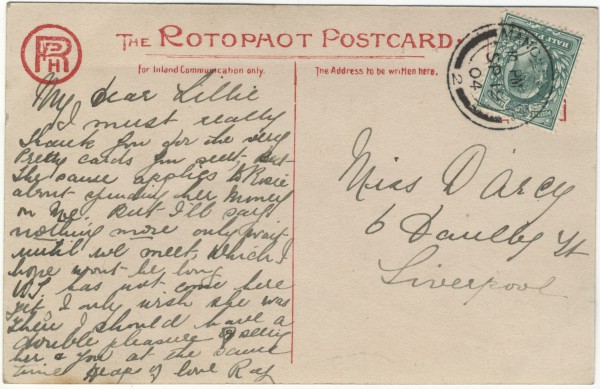 RPH
THE ROTOPHOT POSTCARD.
for Inland Communication only.
The Address to be written here.
HALF PENNY
04
2
My dear Lillie
I must really
thank you for the very
Pretty cards you sent. But
the same applies to Rosie
about spending her money
on me, but I'll say
nothing more only wait
until we meet, which I
hope wont be long
has not come here
yet, I only wish she was
then I should have a
double pleasure of seeing
her & you at the same
time Heaps of love Ray
Miss D'Arcy
6 Daulby St
Liverpool